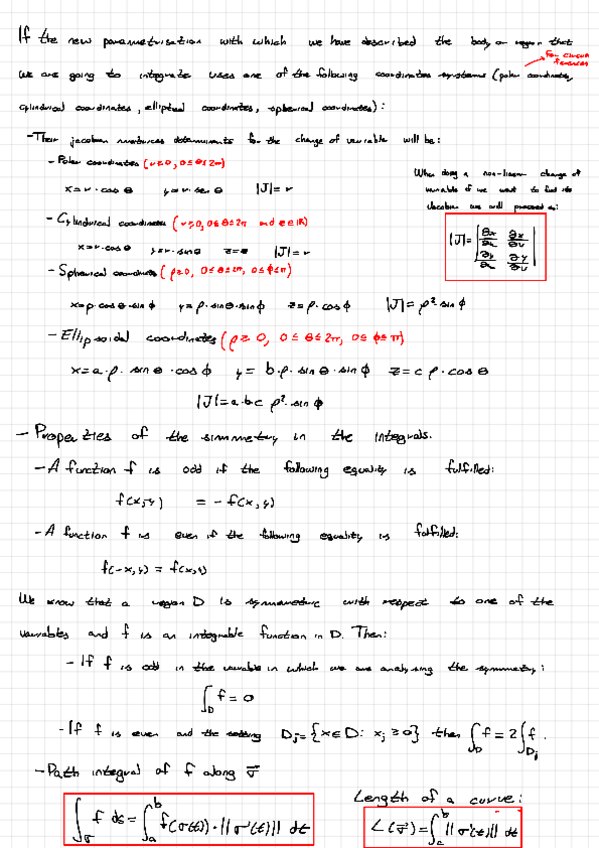 If the new parametrisation with which we have described the body or region that
we are going to integrate uses one of the following coordinates systems (polar coordinates,
cylindrical coordinates, elliptical coordinates, spherical coordinates):
- Their jacobian matrices determinants for the change of variable will be:
- Polar coordinates (r≥0, 0≤θ≤2π)
x=r·cos θ y=r·sen θ |J|=r
When doing a non-linear change of
variable if we want to find its
Jacobian we will proceed as:
|J|= | ∂x/∂u ∂x/∂v |
| ∂y/∂u ∂y/∂v |
- Cylindrical coordinates (r≥0, 0≤θ≤2π and z∈ℝ)
x=r·cosθ y=r·sinθ z=z |J|=r
- Spherical coordinates (ρ≥0, 0≤θ≤2π, 0≤ϕ≤π)
x=ρ·cosθ·sinϕ y=ρ·sinθ·sinϕ z=ρ·cosϕ |J|=ρ²·sinϕ
- Ellipsoidal coordinates (ρ≥0, 0≤θ≤2π, 0≤ϕ≤π)
x=a·ρ·sinθ·cosϕ y=b·ρ·sinθ·sinϕ z=cρ·cosθ
|J|=a·b·c ρ²·sinϕ
- Properties of the simmetry in the integrals.
- A function f is odd if the following equality is fulfilled:
= -f(x,y)
- A function f is even if the following equality is fulfilled:
f(-x,y) = f(x,y)
We know that a region D is symmetric with respect to one of the
variables and f is an integrable function in D. Then:
- If f is odd in the variable in which we are analysing the symmetry:
∫_D f = 0
- If f is even and the Dⱼ={x∈D: xⱼ≥0} then ∫_D f = 2∫_Dⱼ f.
- Path integral of f along σ⃗
∫_σ f ds = ∫_a^b f(σ(t))·||σ'(t)|| dt
Length of a curve:
L(σ⃗)=∫_a^b ||σ'(t)|| dt